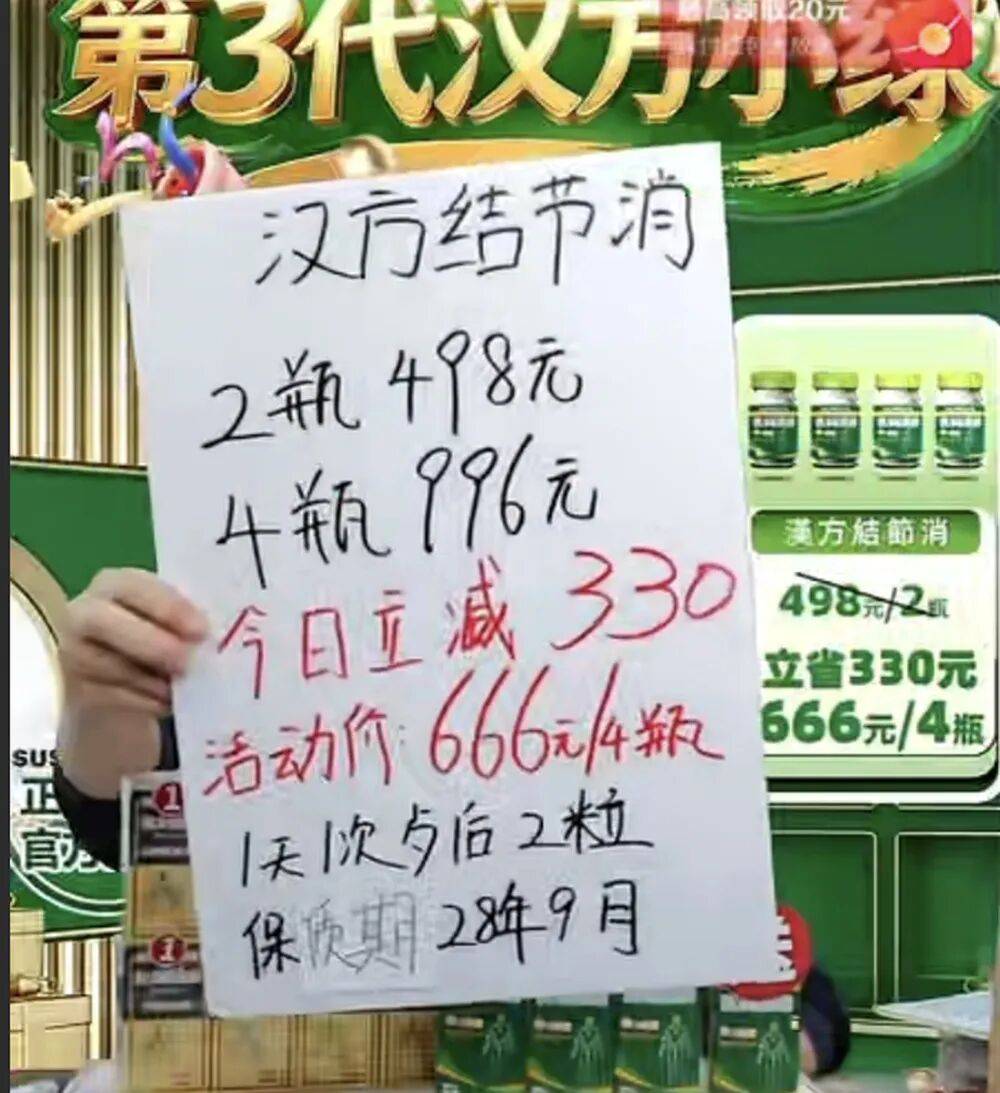 第3代汉方小绿
最高领取20元
汉方结节消
2瓶 498元
4瓶 996元
今日立减 330
活动价:666元/4瓶
1天1次歺后2粒
保质期 28年9月
漢方結節消
498元/2瓶
立省330元
666元/4瓶
SUS
正
官方
1
1